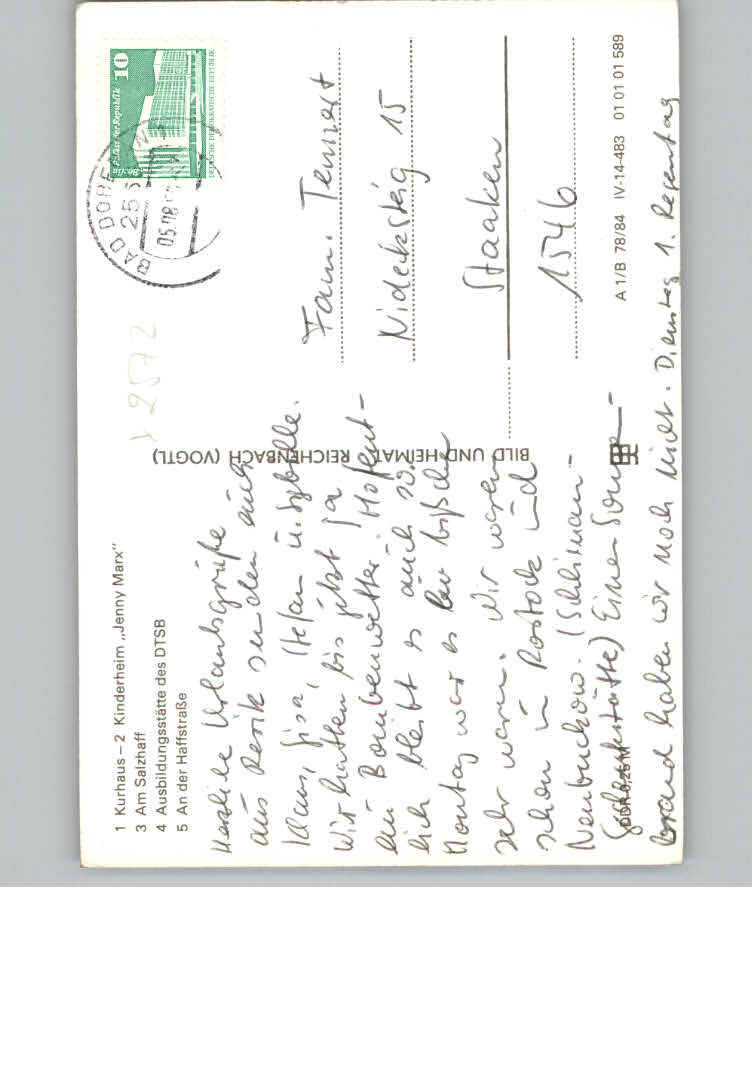 1 Kurhaus – 2 Kinderheim „Jenny Marx"
3 Am Salzhaff
4 Ausbildungsstätte des DTSB
5 An der Haffstraße
Herzliche Urlaubsgrüße
aus Rerik senden euch
Klaus, Gisa, Stefan u. Sybille.
Wir hatten bis jetzt ja
ein Bombenwetter. Hoffent-
lich bleibt es auch so.
Montag war es ein bißchen
sehr warm. Wir waren
schon in Rostock und
Neubuckow. (Schliman-
Gedenkstätte) Einen Sonnen-
brand haben wir noch nicht. Dienstag 1. Regentag
DDR 0,25 M
BILD UND HEIMAT REICHENBACH (VOGTL)
10
Palast der Republik
Berlin
DEUTSCHE DEMOKRATISCHE REPUBLIK
BAD DOBE
255
05.
78
> 2572
Fam. Tennert
Nidecksteig 15
Staaken
1546
A 1/B 78/84 IV-14-483 01 01 01 589